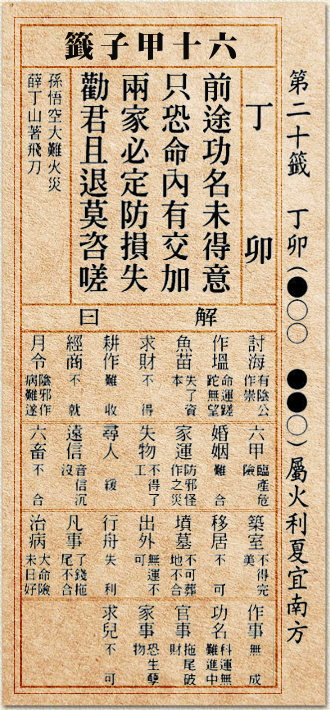 第二十籤 丁卯(●○○ ●●○)屬火利夏宜南方
六十甲子籤
丁卯
前途功名未得意
只恐命內有交加
兩家必定防損失
勸君且退莫咨嗟
孫悟空大難火災
薛丁山著飛刀
解曰
討海 有陰公作崇
作塭 命運蹉跎無望
魚苗 失了資本
求財 不得
耕作 難收
經商 不就
月令 陰邪作病難遂
六甲 臨產危險
婚姻 難合
家運 防邪怪作之災
失物 不得了工
尋人 緩
遠信 音信沉沒
六畜 不合
築室 不得完美
移居 不可
墳墓 不可葬地不合
出外 無運不可
行舟 失利
凡事 了錢拖尾不合
治病 大命險未日好
作事 無成
功名 科運無難進中
官事 拖尾破財
家事 恐生孽物
求兒 不可